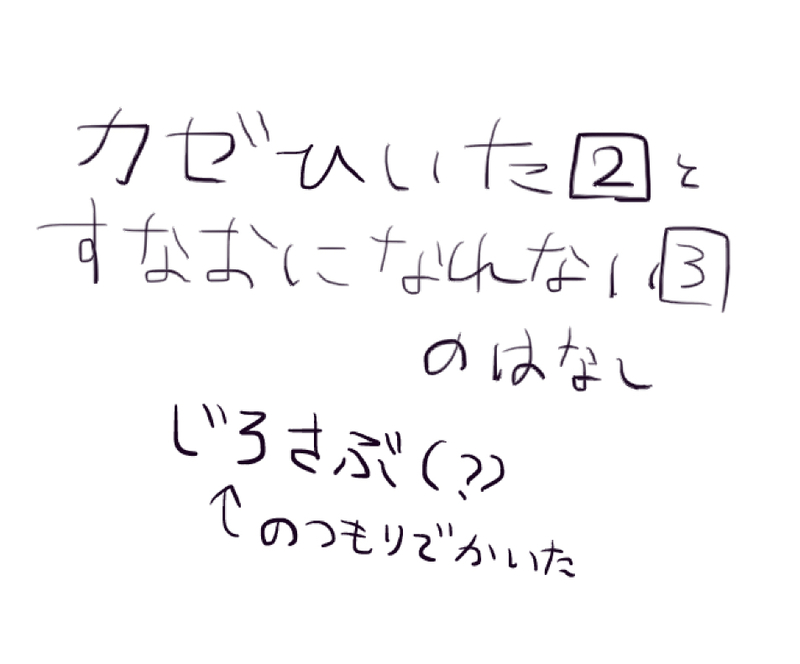 カゼひいた2と
すなおになれんない3
のはなし
じろさぶ(?)
↑のつもりでかいた